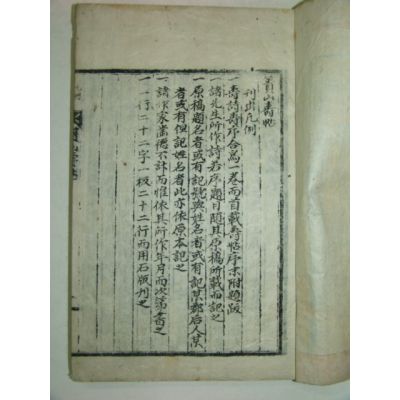 黃山壽帖
刊出凡例
一壽詩壽序合爲一卷而首載壽帖序末附題跋
一諸先生所作詩若序題目隨其原稿所載而記之
一原稿題名者或有記號與姓名者或有記某郡后人某
者或有但記姓名者此亦依原本記之
一諸作家嵩德不計而惟依其所作年月而次第書之
一一行二十二字一板二十二行而用石版刊之